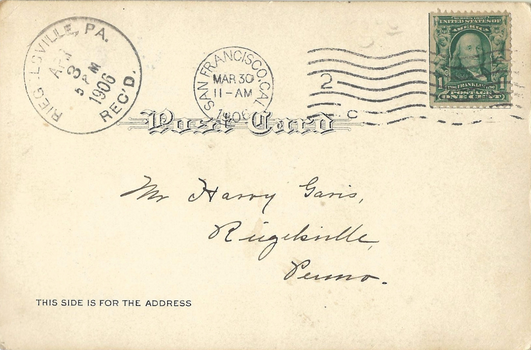 RIEGELSVILLE, PA.
APR
3
5 PM
1906
REC'D.
SAN FRANCISCO, CAL.
MAR 30
11-AM
1906
2
C
UNITED STATES OF
AMERICA
FRANKLIN
POSTAGE
ONE CENT
Post Card
Mr Harry Garis,
Riegelsville,
Penna.
THIS SIDE IS FOR THE ADDRESS